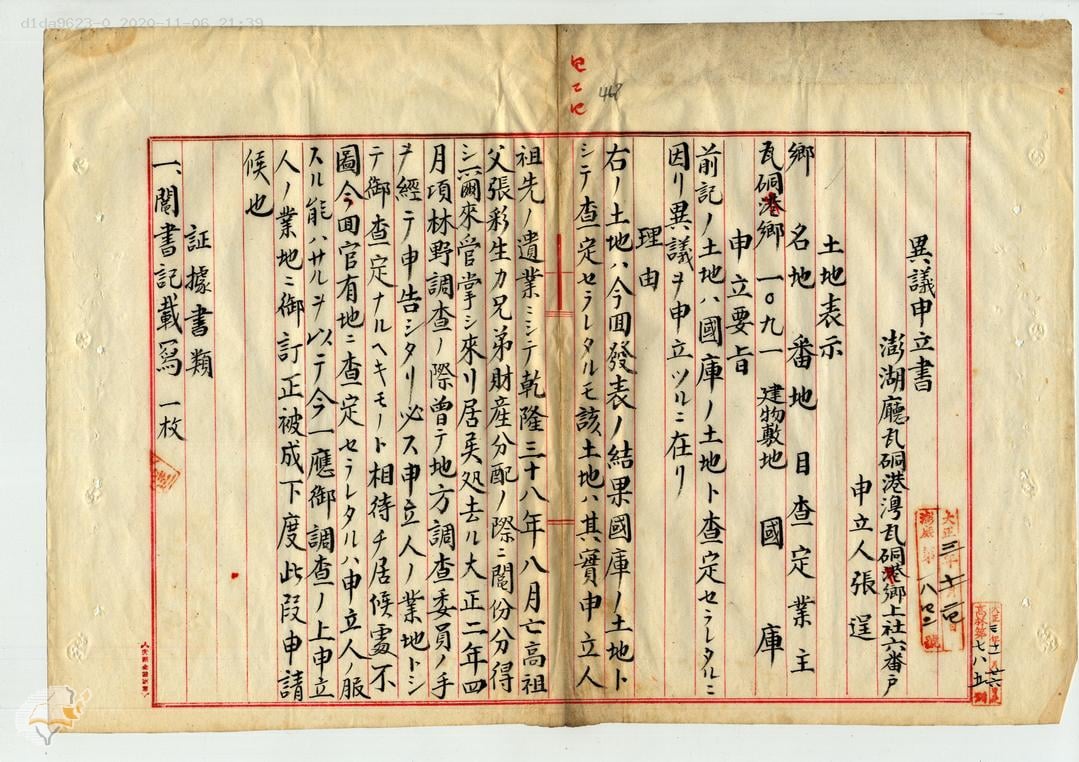 d1da9623-0 2020-11-06 21:39
468
異議申立書
澎湖廳瓦硐港澚瓦硐港鄉上社六番戶
申立人張逞
土地表示
鄉名地番地目查定業主
瓦硐港鄉一〇九一建物敷地國庫
申立要旨
前記ノ土地ハ國庫ノ土地ト查定セラレタルニ
因リ異議ヲ申立ツルニ在リ
理由
右ノ土地ハ今回發表ノ結果國庫ノ土地ト
シテ查定セラレタルモ該土地ハ其實申立人
祖先ノ遺業ニシテ乾隆三十八年八月亡高祖
父張彩生カ兄弟財産分配ノ際ニ鬮份分得
シ爾來管掌シ來リ居矣処去ル大正二年四
月頃林野調查ノ際曾テ地方調查委員ノ手
ヲ經テ申告シタリ必ス申立人ノ業地トシ
テ御查定ナルヘキモノト相待チ居候處不
圖今回官有地ニ查定セラレタルハ申立人ノ服
スル能ハサルヲ以テ今一應御調查ノ上申立
人ノ業地ニ御訂正被成下度此段申請
候也
証據書類
一、鬮書記載寫一枚